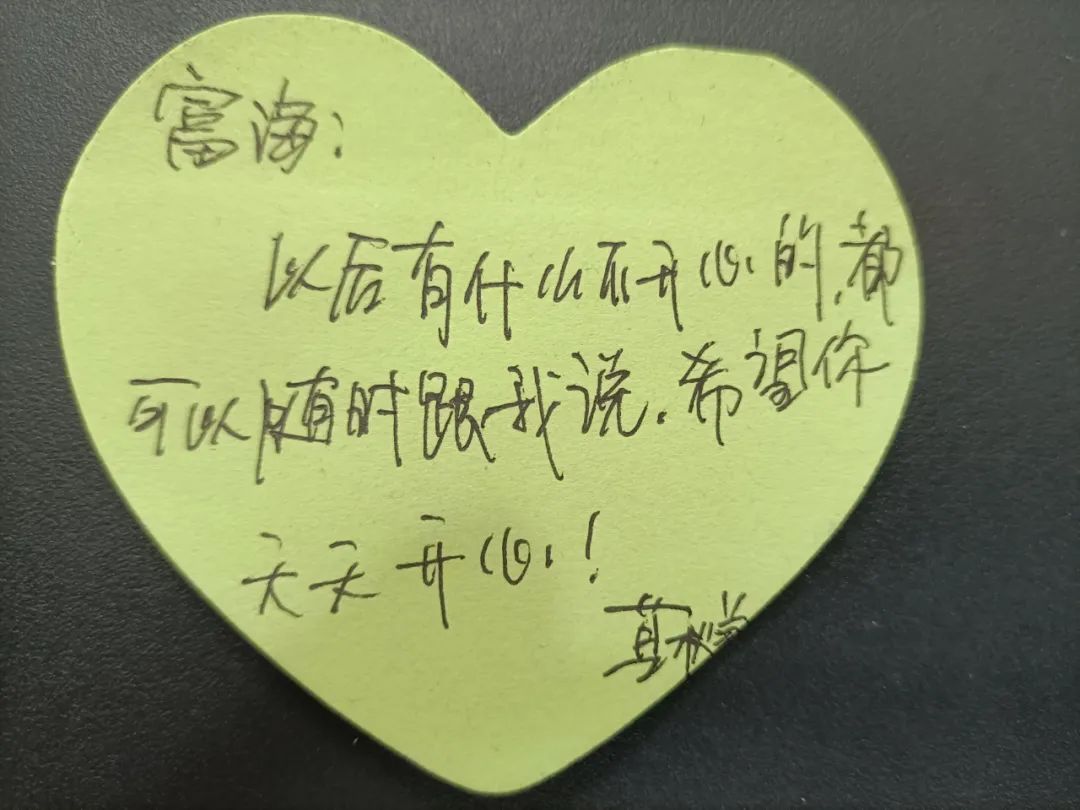 富海:
以后有什么不开心的,都
可以随时跟我说.希望你
天天开心!